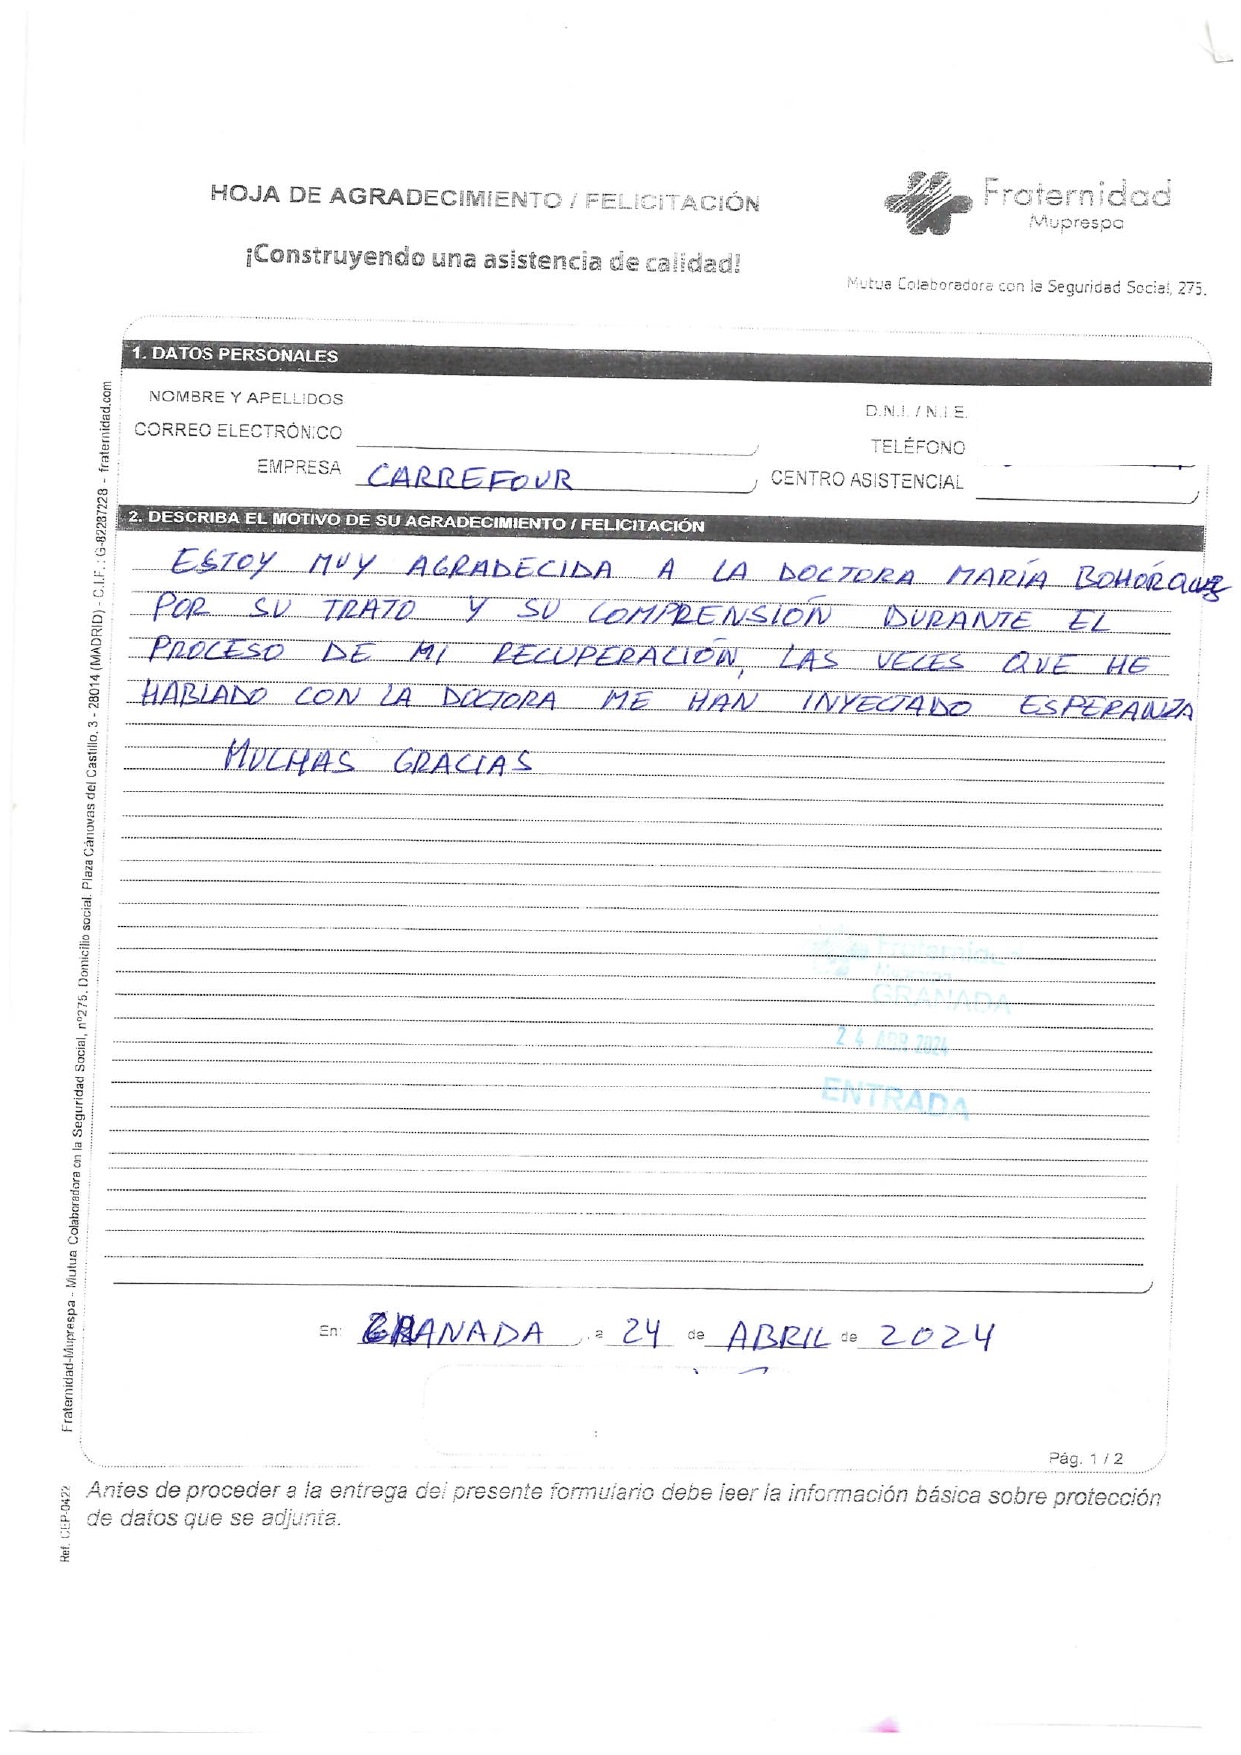 HOJA DE AGRADECIMIENTO / FELICITACIÓN
¡Construyendo una asistencia de calidad!
Fraternidad
Muprespa
Mutua Colaboradora con la Seguridad Social, 275.
1. DATOS PERSONALES
NOMBRE Y APELLIDOS
D.N.I. / N.I.E.
CORREO ELECTRÓNICO
TELÉFONO
EMPRESA CARREFOUR
CENTRO ASISTENCIAL
2. DESCRIBA EL MOTIVO DE SU AGRADECIMIENTO / FELICITACIÓN
ESTOY MUY AGRADECIDA A LA DOCTORA MARÍA BOHÓRQUEZ
POR SU TRATO Y SU COMPRENSIÓN DURANTE EL
PROCESO DE MI RECUPERACIÓN, LAS VECES QUE HE
HABLADO CON LA DOCTORA ME HAN INYECTADO ESPERANZA
MUCHAS GRACIAS
Fraternidad
Muprespa
GRANADA
24 ABR 2024
ENTRADA
En: GRANADA, a 24 de ABRIL de 2024
Pág. 1 / 2
Antes de proceder a la entrega del presente formulario debe leer la información básica sobre protección
de datos que se adjunta.
Fraternidad-Muprespa - Mutua Colaboradora con la Seguridad Social, nº275. Domicilio social. Plaza Cánovas del Castillo, 3 - 28014 (MADRID) - C.I.F.: G-82287228 - fraternidad.com
Ref. CEP-0422